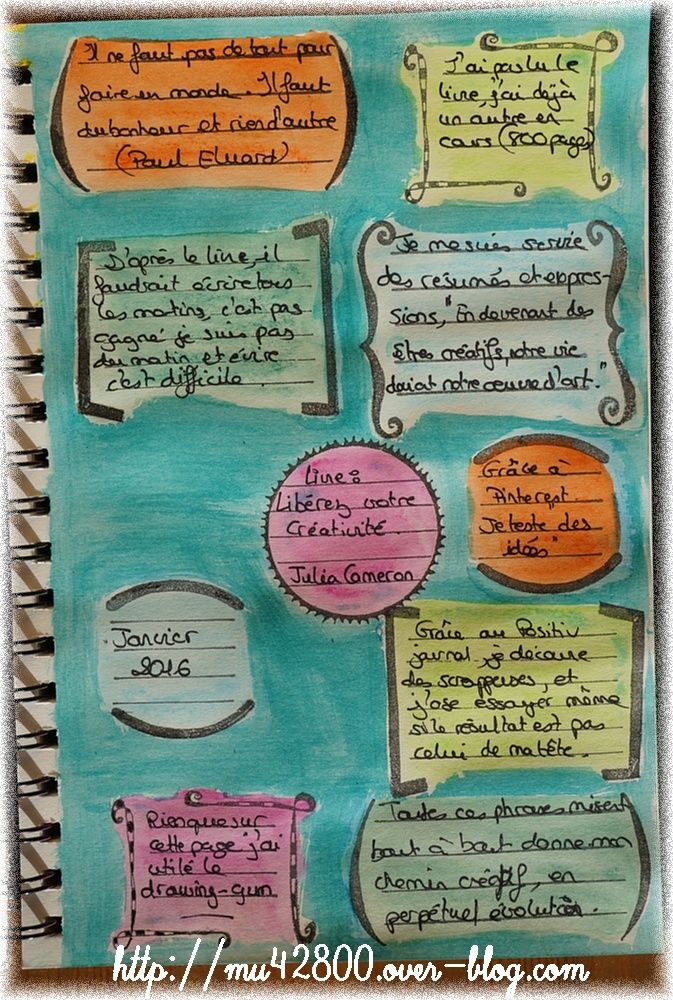 Il ne faut pas de tout pour
faire en monde. Il faut
du bonheur et rien d'autre
(Paul Eluard)
J'ai pas lu le
livre, j'ai déjà
un autre en
cours (800 pages)
D'après le livre, il
faudrait écrire tous
les matins, c'est pas
gagné je suis pas
du matin et écrire
c'est difficile.
Je me suis servie
des resumés et expres-
sions, "En devenant des
êtres créatifs, notre vie
devient notre oeuvre d'art."
Livre:
Libérez votre
Créativité.
Julia Cameron
Grâce à
Pinterest.
Je teste "des
idées"
Janvier
2016
Grâce au Positiv
journal, je découvre
des scrappeuses, et
j'ose essayer même
si le résultat est pas
celui de ma tête.
Rien que sur
cette page j'ai
utilé le
drawing-gum
Toutes ces phrases misent
bout à bout donne mon
chemin créatif, en
perpétuel évolution.
http://mu42800.over-blog.com